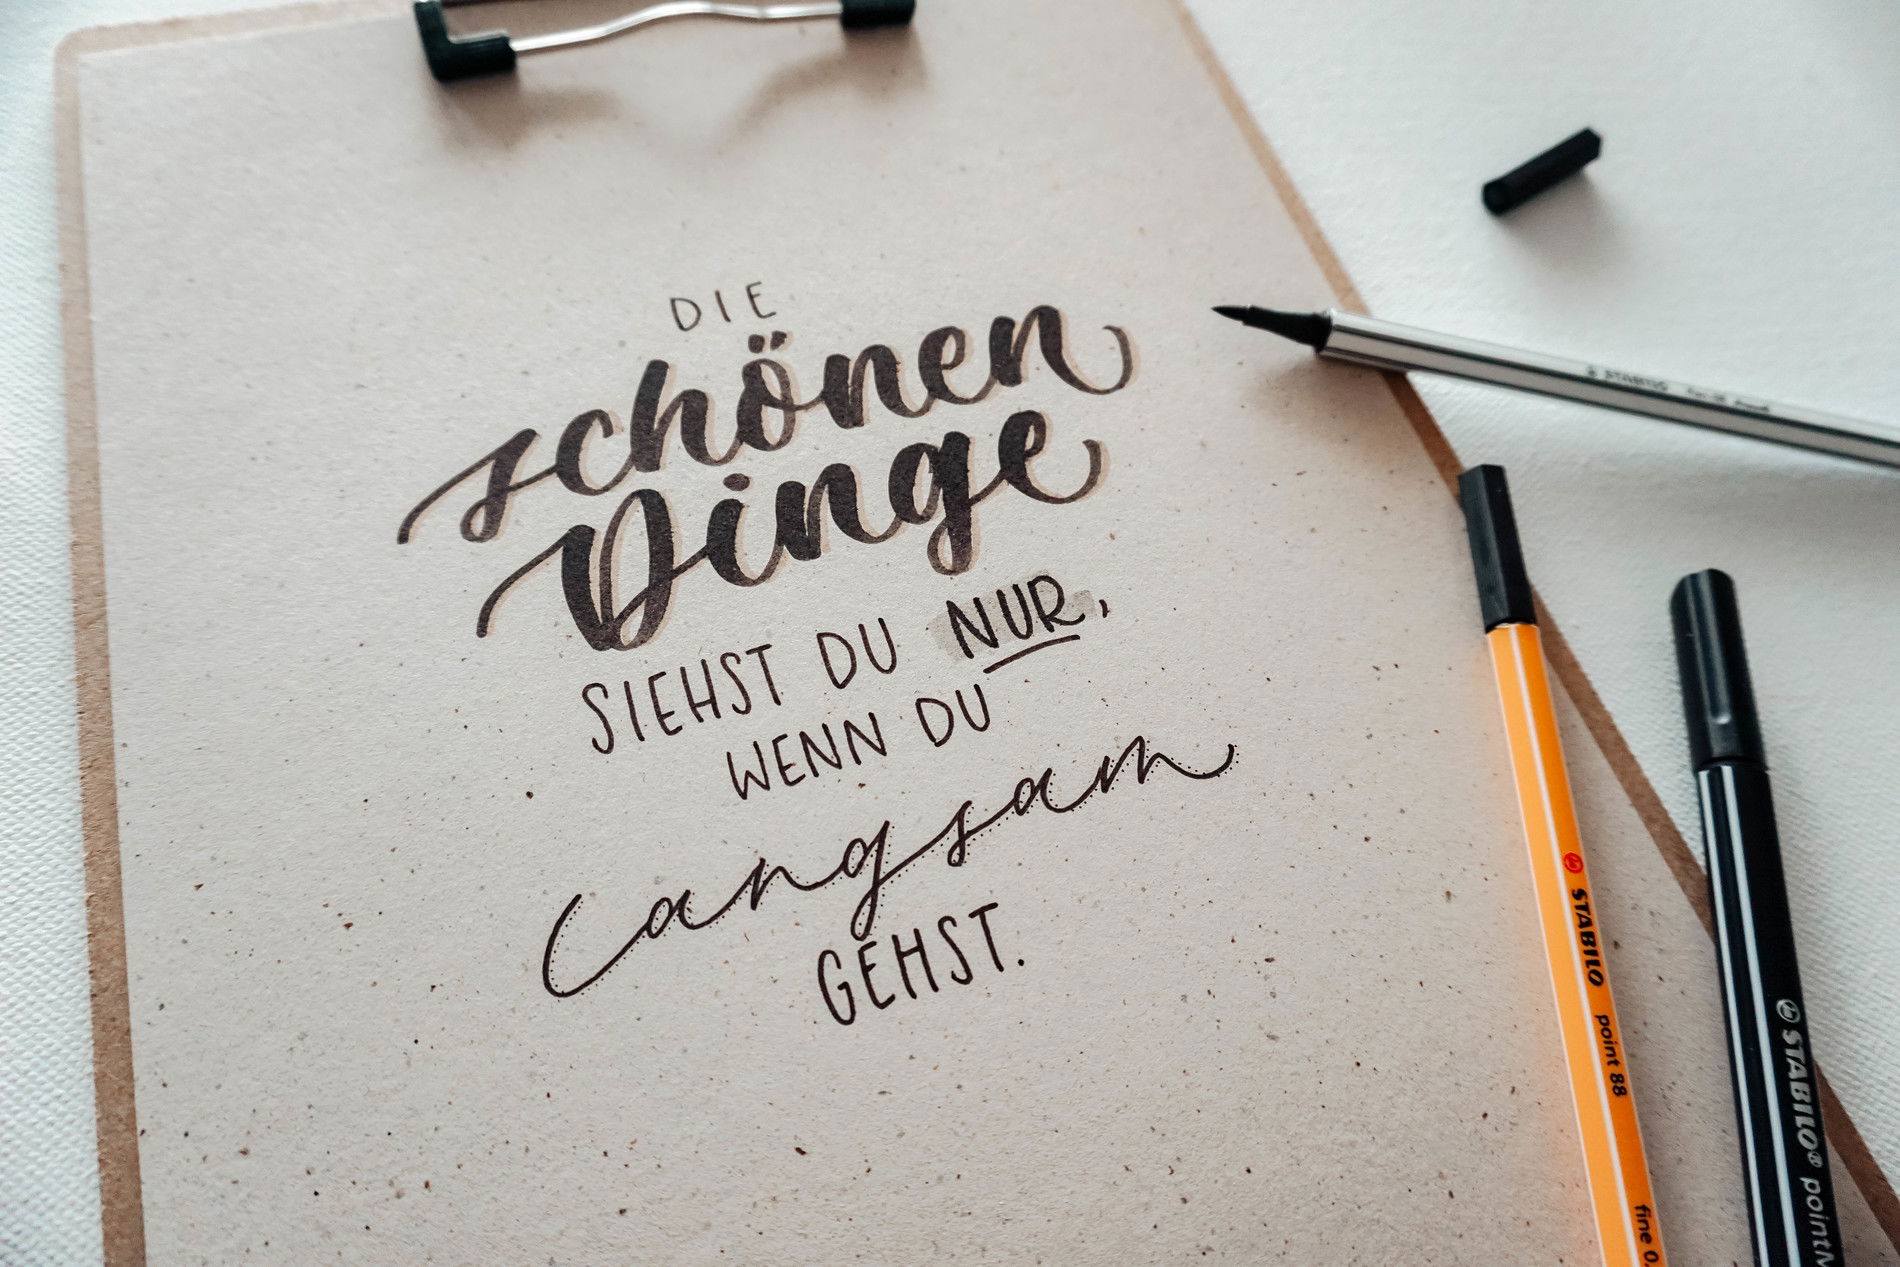 DIE
schönen
Dinge
SIEHST DU NUR,
WENN DU
langsam
GEHST.
STABILO
STABILO point 88 fine 0.
STABILO® pointM